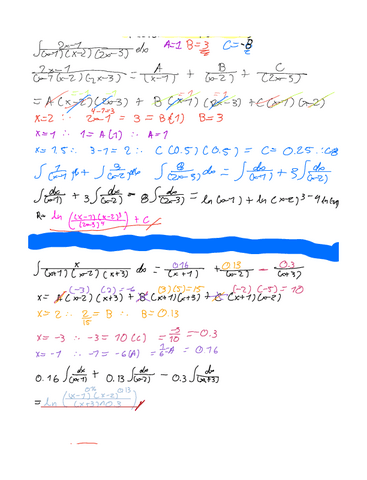 ∫ 2x-1 / (x-1)(x-2)(2x-3) dx    A=1 B=3 C=-8
2x-1 / (x-1)(x-2)(2x-3) = A / (x-1) + B / (x-2) + C / (2x-5)
= A(x-2)(2x-3) + B(x-1)(2x-3) + C(x-1)(x-2)
x=2 ∴ 2x-1 = 3 = B(1) B=3
x=1 ∴ 1=A(1) ∴ A=1
x=1.5 ∴ 3-1=2 ∴ C(0.5)(0.5) = C = 0.25 ∴ C8
∫ dx/(x-1) + 3∫ dx/(x-2) - 8∫ dx/(2x-3) = ln(x-1) + ln(x-2)^3 - 4ln
R= ln ((x-1)(x-2)^3 / (2x-3)^4) + C
∫ x / (x+1)(x-2)(x+3) dx = 0.16 / (x+1) + 0.13 / (x-2) - 0.3 / (x+3)
(-3) (2)=-6 (3)(5)=15 (-2)(-5)=10
x= A(x-2)(x+3) + B(x+1)(x+3) + C(x+1)(x-2)
x=2 ∴ 2/15 = B ∴ B=0.13
x=-3 ∴ -3=10(C) = -3/10 = -0.3
x=-1 ∴ -1=-6(A) = 1/6 = A = 0.16
0.16∫ dx/(x+1) + 0.13∫ dx/(x-2) - 0.3∫ dx/(x+3)
= ln ((x-1)^0.16 (x-2)^0.13 / (x+3)^0.3)